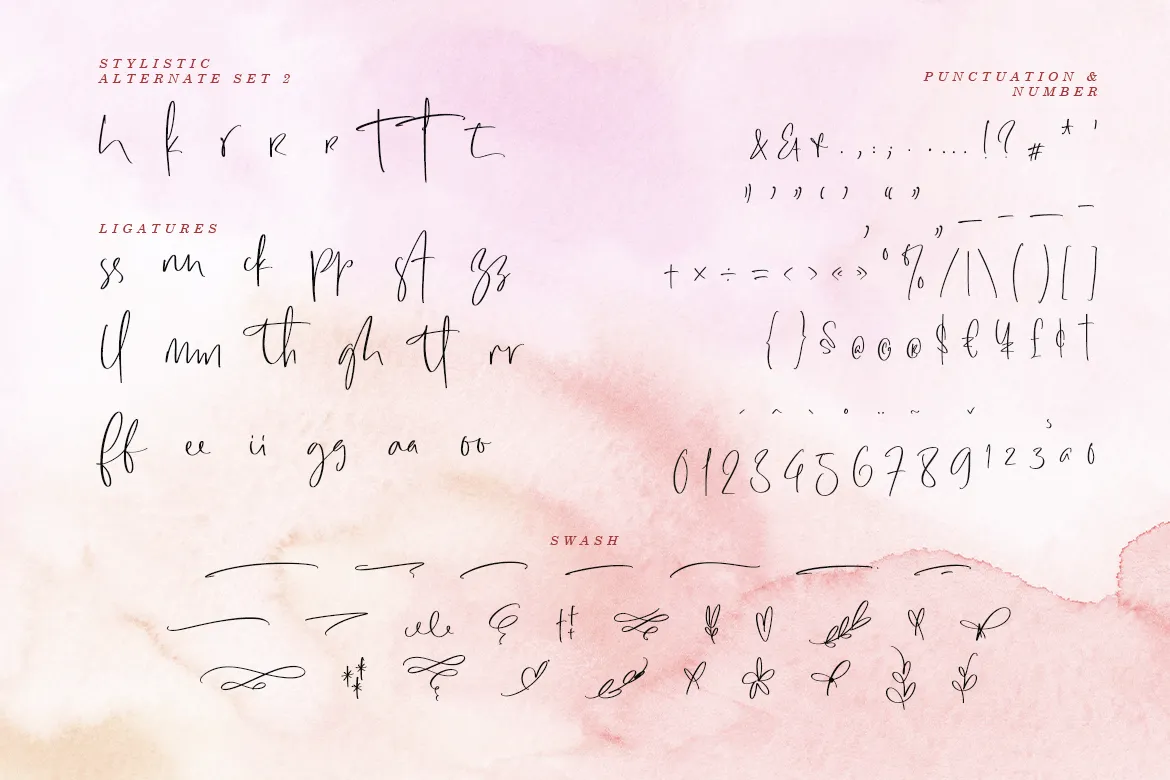 STYLISTIC
ALTERNATE SET 2
h k r R R T T t
LIGATURES
ss nn ck pp st zz
ll mm th gh tt rr
ff ee ii gg aa oo
PUNCTUATION &
NUMBER
& & & . , : ; · . ... ! ? # * '
" ) » ( ) “ ”
, „ — – — -
+ × ÷ = < > « » ° % / | \ ( ) [ ]
{ } § @ © ® $ € ¥ £ ¢ †
´ ^ ` ° ¨ ~ ˇ ¸
0 1 2 3 4 5 6 7 8 9 1 2 3 a o
SWASH